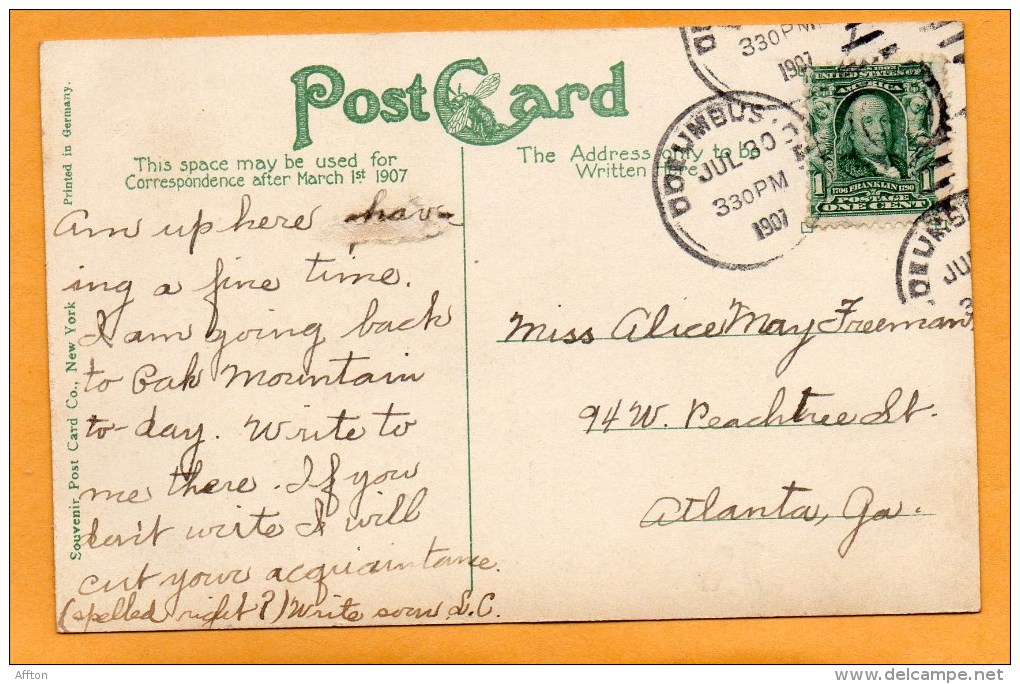 Post Card
This space may be used for
Correspondence after March 1st 1907
The Address only to be
Written Here.
Printed in Germany.
Souvenir Post Card Co., New York
330PM
1907
COLUMBUS
JUL 30
330PM
1907
UNITED STATES OF
AMERICA
1 1
1706 FRANKLIN 1790
POSTAGE
ONE CENT
Am up here hav-
ing a fine time.
I am going back
to Oak Mountain
to-day. Write to
me there. If you
don't write I will
cut your acquaintance.
(spelled right?) Write soon L.C.
Miss Alice May Freeman,
94 W. Peachtree St.
Atlanta, Ga.
Affton
delcampe.net